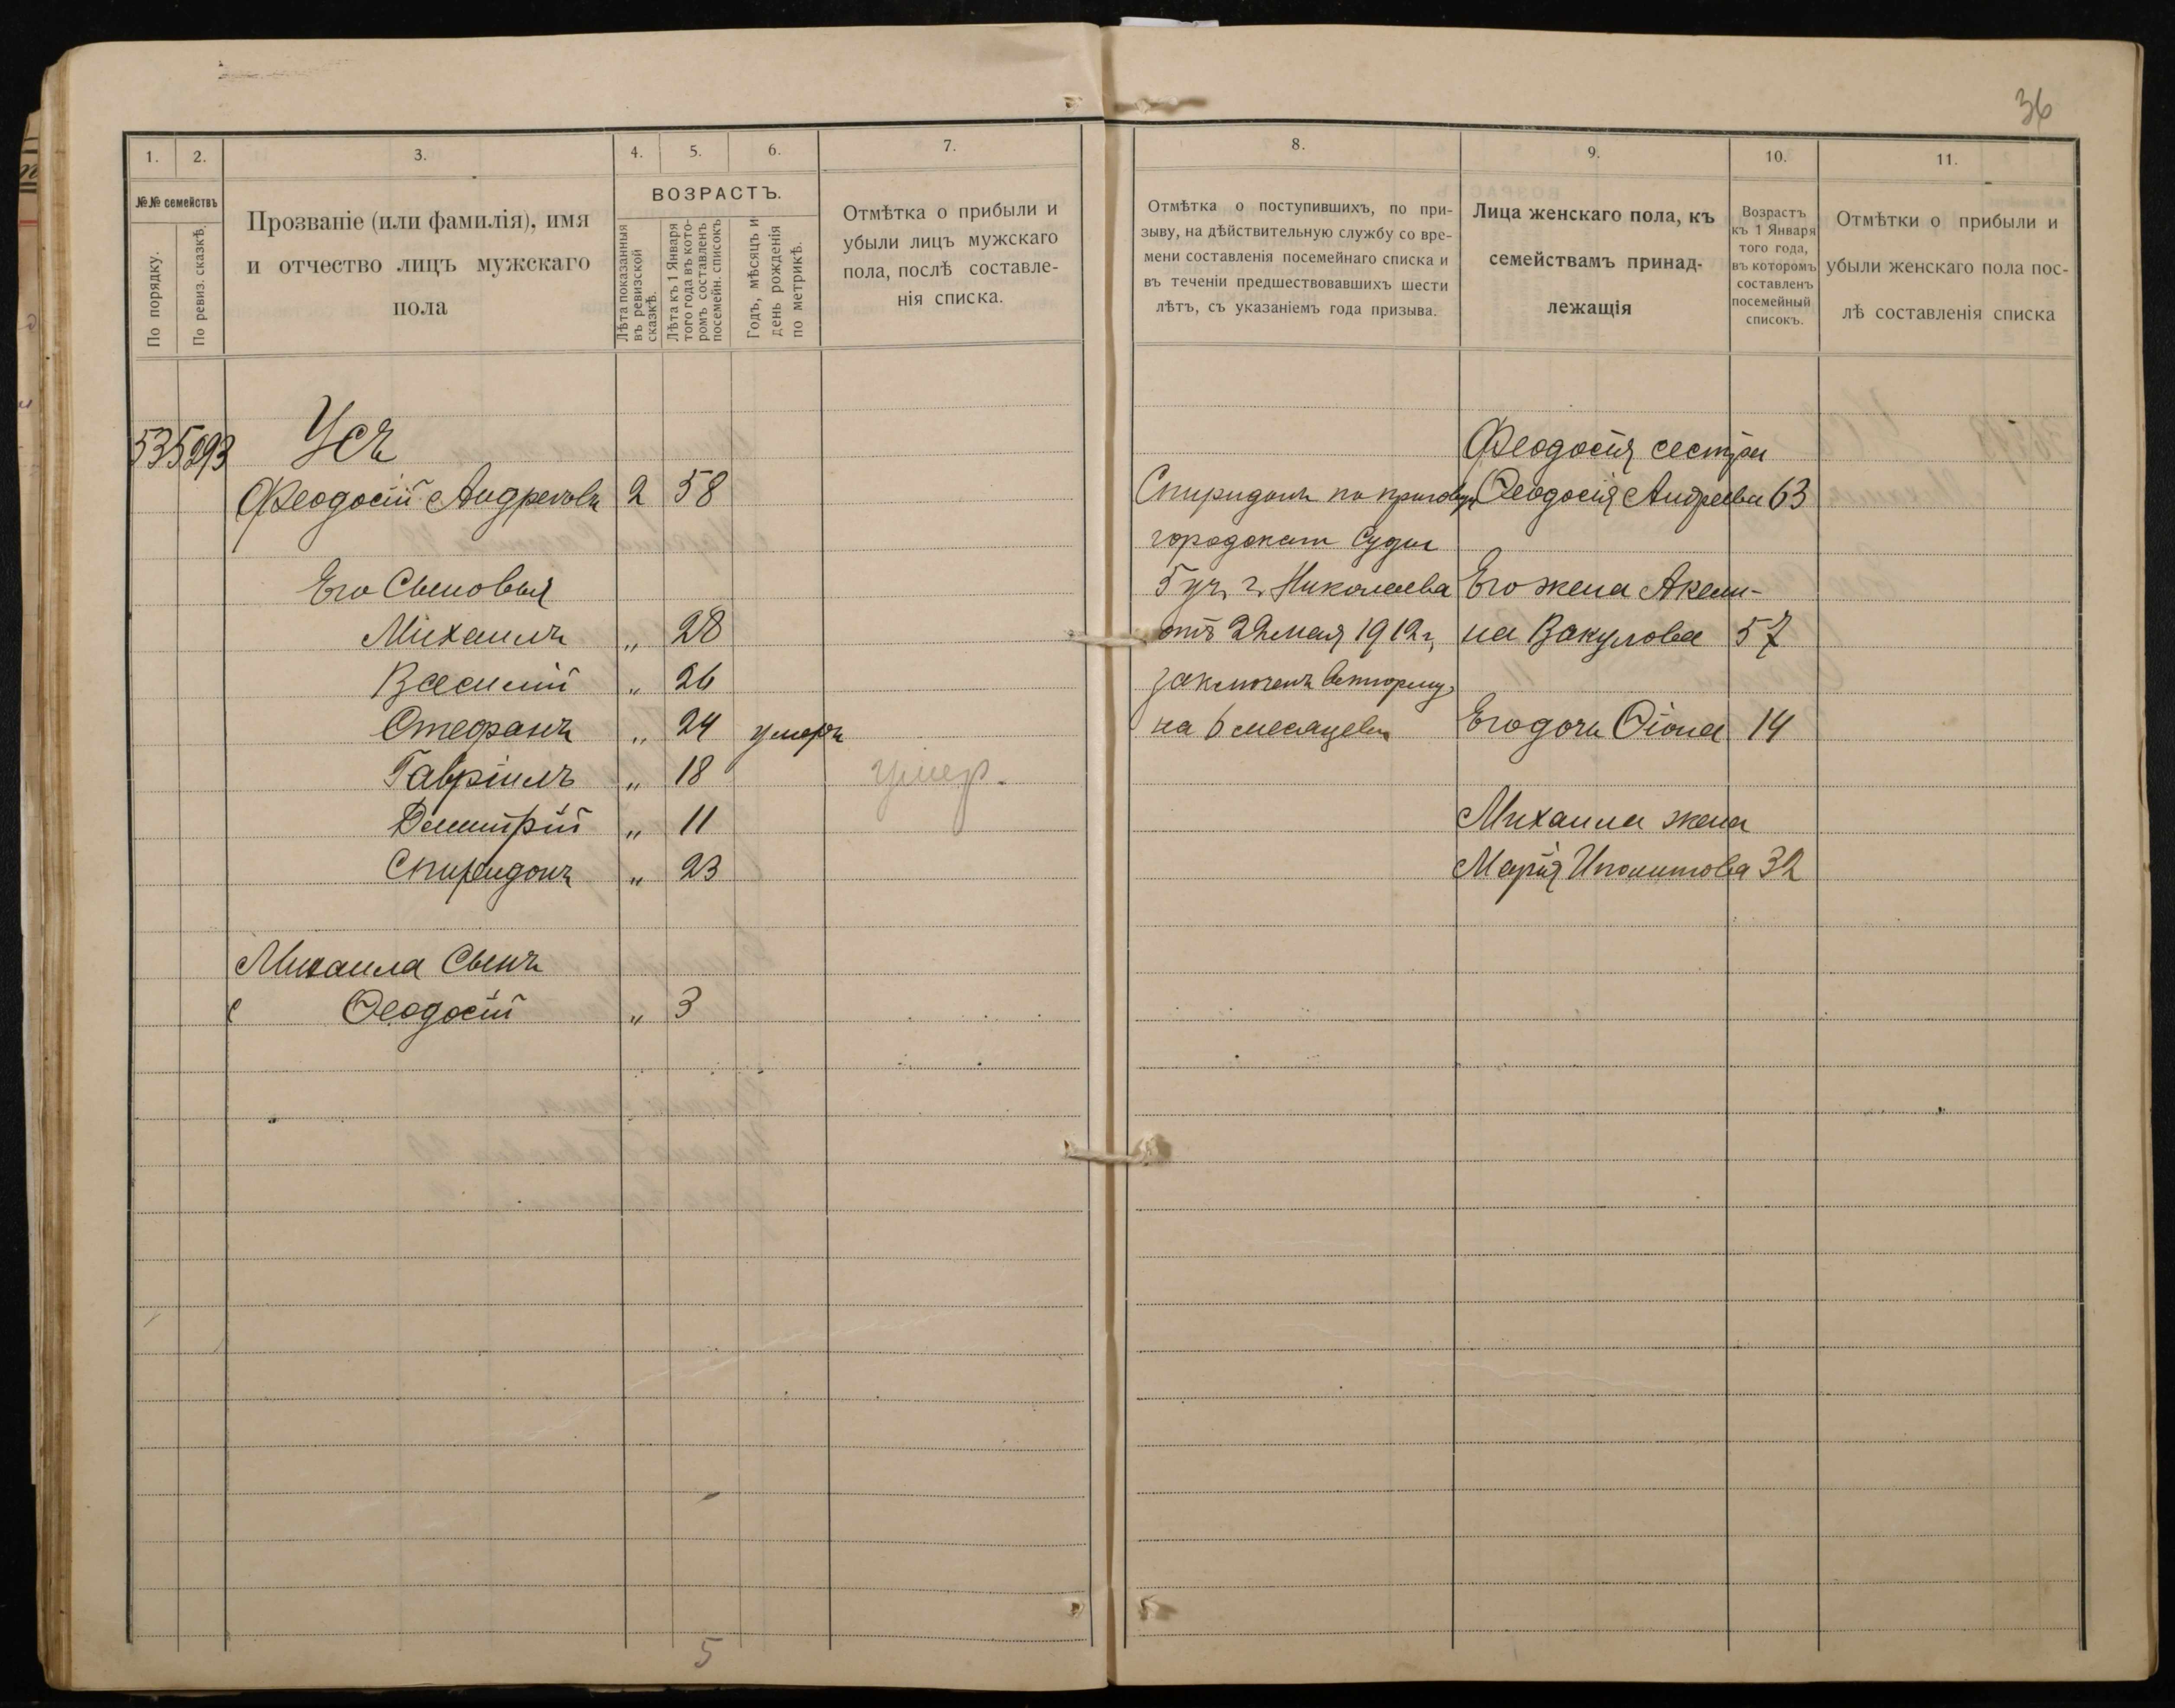 36
1. 2. 3. 4. 5. 6. 7.
№№ семействъ
По порядку.
По ревиз. сказкѣ.
Прозваніе (или фамилія), имя
и отчество лицъ мужскаго
пола
ВОЗРАСТЪ.
Лѣта показанныя
въ ревизской
сказкѣ.
Лѣта къ 1 Января
того года въ кото-
ромъ составленъ
посемейн. списокъ
Годъ, мѣсяцъ и
день рожденія
по метрикѣ.
Отмѣтка о прибыли и
убыли лицъ мужскаго
пола, послѣ составле-
нія списка.
535 293 Усъ
Феодосій Андреевъ 2 58
Его Сыновья
Михаилъ „ 28
Василій „ 26
Стефанъ „ 24 умеръ
Гавріилъ „ 18 умер.
Димитрій „ 11
Спиридонъ „ 23
Михаила Сынъ
Феодосій „ 3
5
8. 9. 10. 11.
Отмѣтка о поступившихъ, по при-
зыву, на дѣйствительную службу со вре-
мени составленія посемейнаго списка и
въ теченіи предшествовавшихъ шести
лѣтъ, съ указаніемъ года призыва.
Лица женскаго пола, къ
семействамъ принад-
лежащія
Возрастъ
къ 1 Января
того года,
въ которомъ
составленъ
посемейный
списокъ.
Отмѣтки о прибыли и
убыли женскаго пола пос-
лѣ составленія списка
Спиридонъ по приговору
Судьи
5 уч. г. Николаева
отъ 22 мая 1912 г.
заключенъ въ тюрьму
на 6 месяцевъ
Феодосія сестра
Феодосія Андреева 63
Его жена Акели-
на Вакулова 57
Его дочь Фіона 14
Михаила жена
Марія Иполитова 32